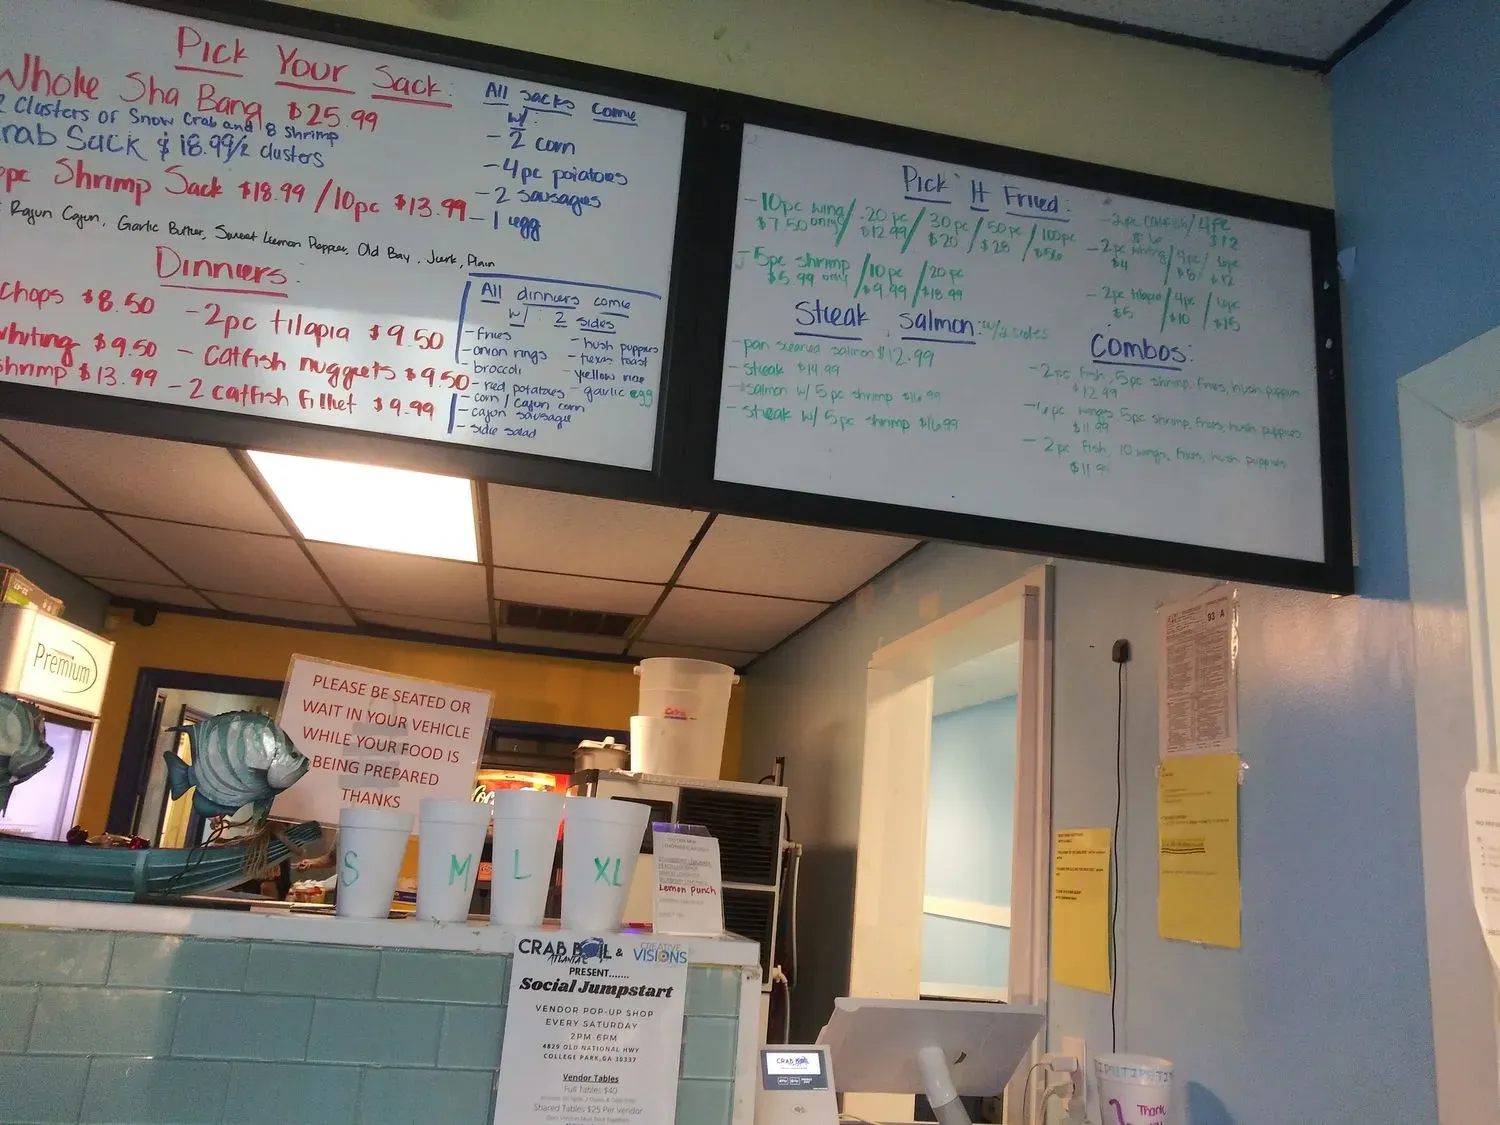 Pick Your Sack:
Whole Sha Bang $25.99
2 Clusters of Snow Crab and 8 Shrimp
rab Sack $18.99/2 clusters
pc Shrimp Sack $18.99 / 10pc $13.99
Rajun Cajun, Garlic Butter, Sweet Lemon Pepper, Old Bay, Jerk, Plain
All sacks come
w/:
- 2 corn
- 4pc potatoes
- 2 sausages
- 1 egg
Dinners:
chops $8.50
whiting $9.50
shrimp $13.99
- 2pc tilapia $9.50
- Catfish nuggets $9.50
- 2 catfish fillet $9.99
All dinners come
w/: 2 sides
- fries
- onion rings
- broccoli
- red potatoes
- corn / cajun corn
- cajun sausage
- side salad
- hush puppies
- texas toast
- yellow rice
- garlic egg
Pick It Fried:
- 10pc wing / 20 pc / 30 pc / 50 pc / 100pc
$7.50 only $12.99 $20 $28
- 5pc shrimp / 10 pc / 20 pc
$5.99 only $9.99 $18.99
- 2pc catfish / 4pc
$12
- 2pc whiting / 4pc / 10pc
$4 $8 $12
- 2pc tilapia / 4pc / 10pc
$5 $10 $15
Steak, Salmon: w/2 sides
- pan seared salmon $12.99
- steak $14.99
- salmon w/ 5 pc shrimp $16.99
- steak w/ 5pc shrimp $16.99
Combos:
- 2pc fish, 5pc shrimp, fries, hush puppies
$12.99
pc wings, 5pc shrimp, fries, hush puppies
$11.99
- 2pc fish, 10 wings, fries, hush puppies
Premium
PLEASE BE SEATED OR
WAIT IN YOUR VEHICLE
WHILE YOUR FOOD IS
BEING PREPARED
THANKS
S
M
L
XL
Lemon Punch
93 A
CRAB BOIL & CREATIVE VISIONS
ATLANTA
PRESENT.......
Social Jumpstart
VENDOR POP-UP SHOP
EVERY SATURDAY
2PM-6PM
4829 OLD NATIONAL HWY
COLLEGE PARK,GA 30337
Vendor Tables
Full Tables $40
Shared Tables $25 Per Vendor
CRAB BOIL
Thank